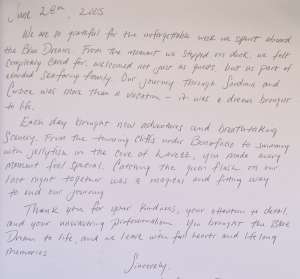 June 28th, 2025
We are so grateful for the unforgettable week we spent aboard
the Blue Dream. From the moment we stepped on deck, we felt
completely cared for, welcomed not just as guests, but as part of
seafaring family. Our journey through Sardinia and
Corsica was more than a vacation - it was a dream brought
to life.
Each day brought new adventures and breathtaking
scenery. From the towering cliffs under Bonifacio to swimming
with jellyfish in the cove of Lavezzi, you made every
moment feel special. Catching the green flash on our
last night together was a magical and fitting way
to end our journey.
Thank you for your kindness, your attention to detail,
and your unwavering professionalism. You brought the Blue
Dream to life, and we leave with full hearts and lifelong
memories.
Sincerely,